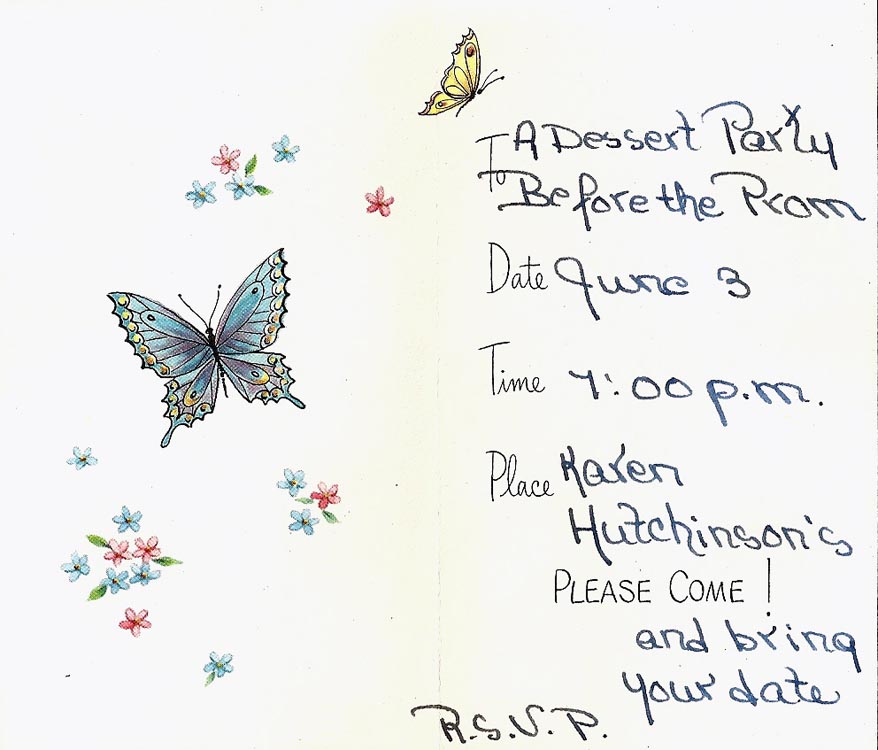 To A Dessert Party
Before the Prom
Date June 3
Time 7:00 p.m.
Place Karen
Hutchinson's
PLEASE COME!
and bring
your date
R.S.V.P.